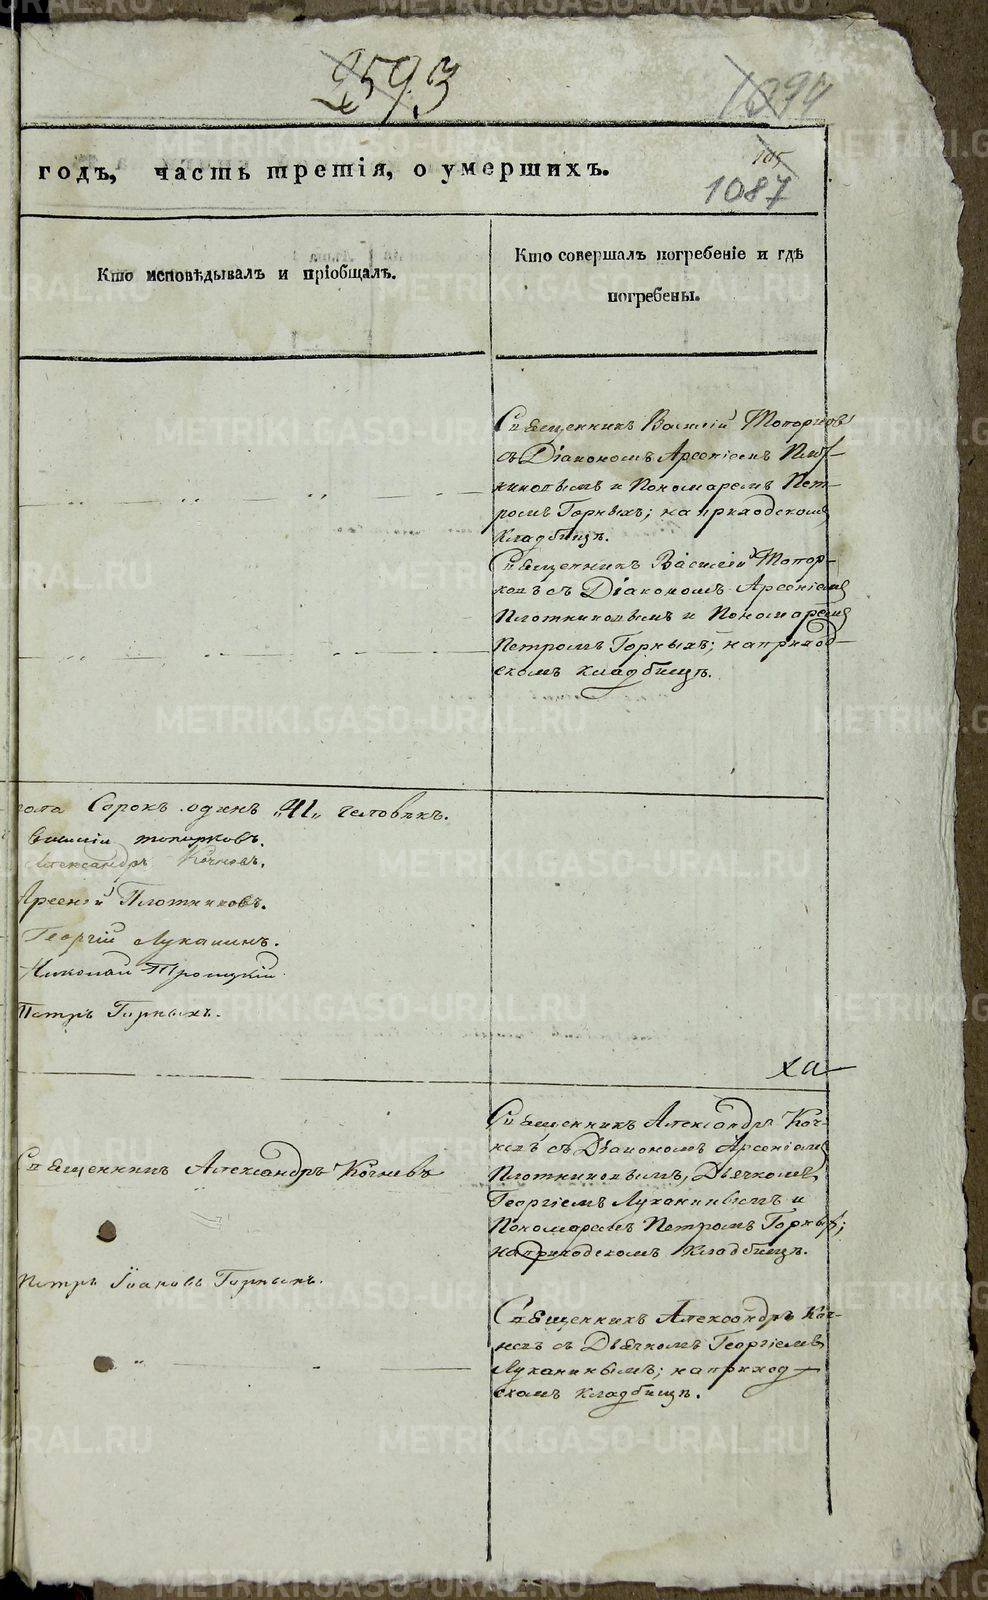 2593
1094
годъ, часть третія, о умершихъ.
105
1087
Кто исповѣдывалъ и пріобщалъ.
Кто совершалъ погребеніе и гдѣ
погребены.
Священникъ Василій Топорковъ
съ Діакономъ Арсеніемъ Плот-
никовымъ и Пономаремъ Пет-
ромъ Горныхъ; на приходскомъ
кладбищѣ.
Священникъ Василій Топор-
ковъ съ Діакономъ Арсеніемъ
Плотниковымъ и Пономаремъ
Петромъ Горныхъ; на приход-
скомъ кладбищѣ.
пола Сорокъ одинъ „41„ человѣкъ.
Василій Топорковъ.
Александръ Кочневъ.
Арсеній Плотниковъ.
Георгій Луканинъ.
Николай Троицкій
Петръ Горныхъ.
Священникъ Александръ Коч-
невъ съ Діакономъ Арсеніемъ
Плотниковымъ, Дьячкомъ
Георгіемъ Луканинымъ и
Пономаремъ Петромъ Горныхъ;
на приходскомъ кладбищѣ.
Священникъ Александръ Кочневъ
Петръ Іоановъ Горныхъ.
Священникъ Александръ Коч-
невъ съ Дьячкомъ Георгіемъ
Луканинымъ; на приход-
скомъ кладбищѣ.
METRIKI.GASO-URAL.RU